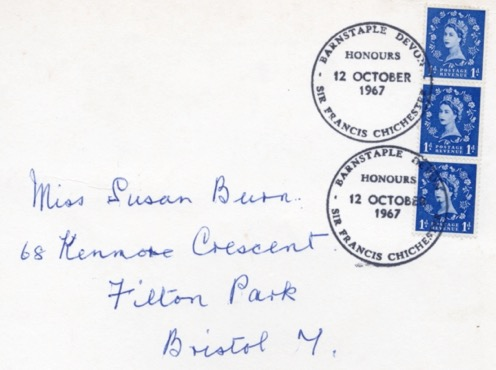 BARNSTAPLE DEVON
HONOURS
12 OCTOBER
1967
SIR FRANCIS CHICHESTER
1d
POSTAGE
REVENUE
1d
1d
POSTAGE
REVENUE
1d
BARNSTAPLE DEVON
HONOURS
12 OCTOBER
1967
SIR FRANCIS CHICHESTER
1d
POSTAGE
REVENUE
1d
Miss Susan Burn.
68 Kenmore Crescent
Filton Park
Bristol 7.